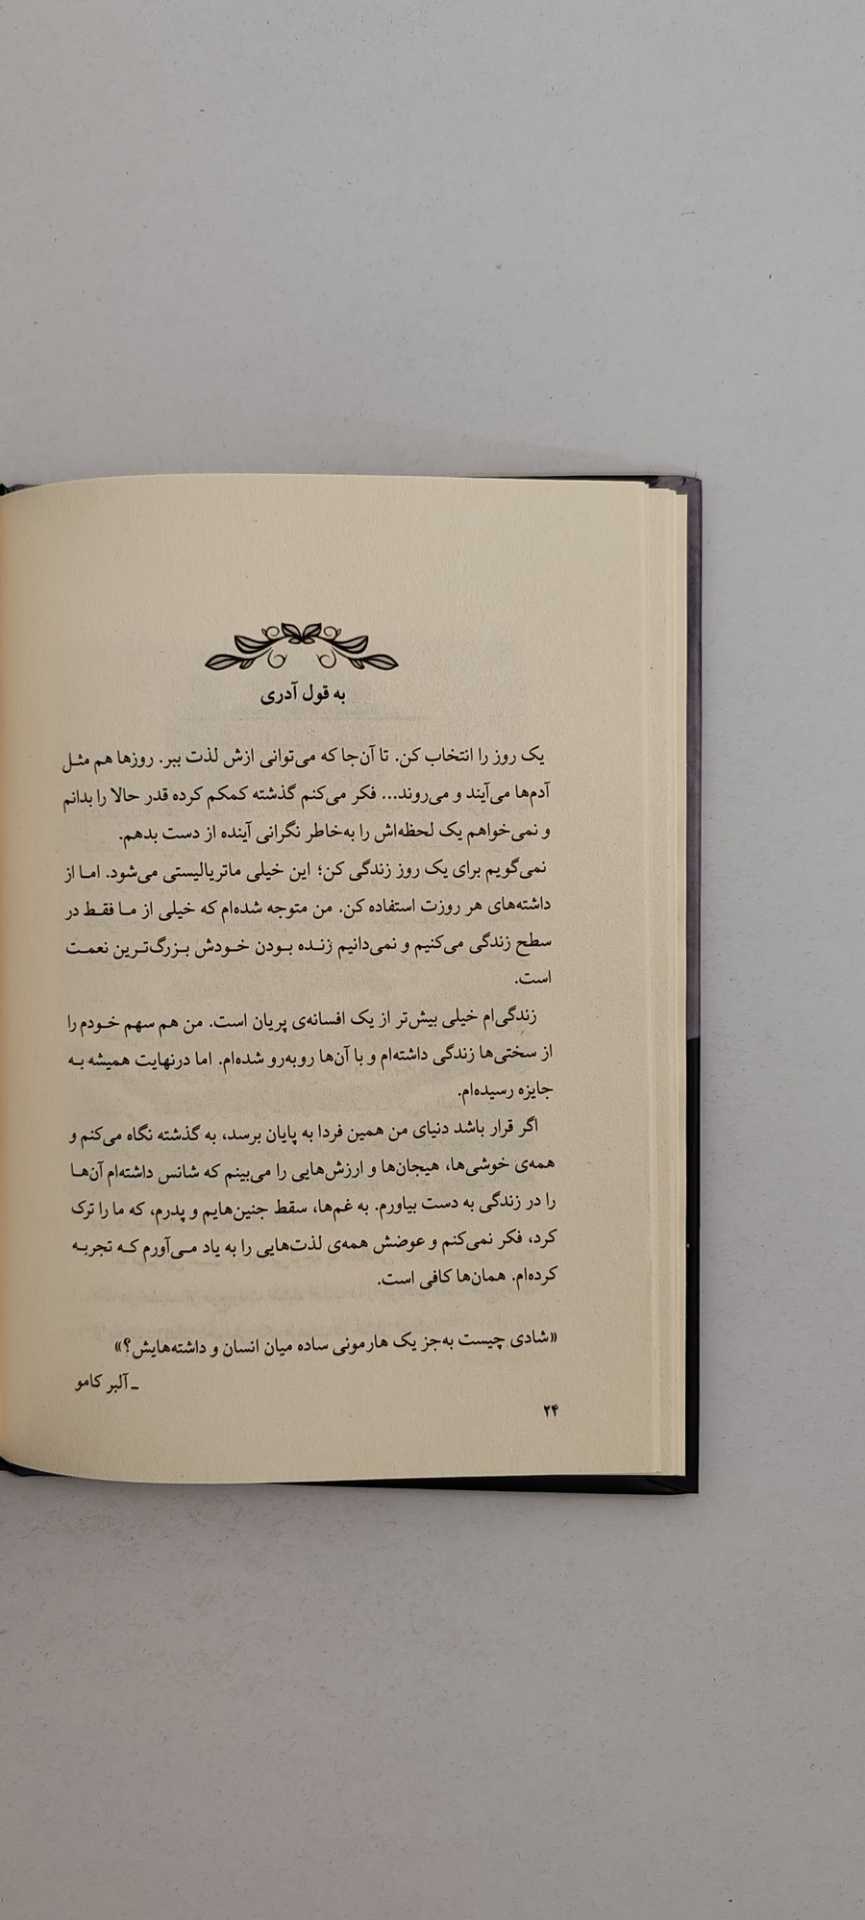 به قول آدری
یک روز را انتخاب کن. تا آن‌جا که می‌توانی ازش لذت ببر. روزها هم مثل
آدم‌ها می‌آیند و می‌روند... فکر می‌کنم گذشته کمکم کرده قدر حالا را بدانم
و نمی‌خواهم یک لحظه‌اش را به‌خاطر نگرانی آینده از دست بدهم.
نمی‌گویم برای یک روز زندگی کن؛ این خیلی ماتریالیستی می‌شود. اما از
داشته‌های هر روزت استفاده کن. من متوجه شده‌ام که خیلی از ما فقط در
سطح زندگی می‌کنیم و نمی‌دانیم زنده بودن خودش بزرگ‌ترین نعمت
است.
زندگی‌ام خیلی بیش‌تر از یک افسانه‌ی پریان است. من هم سهم خودم را
از سختی‌ها زندگی داشته‌ام و با آن‌ها روبه‌رو شده‌ام. اما درنهایت همیشه به
جایزه رسیده‌ام.
اگر قرار باشد دنیای من همین فردا به پایان برسد، به گذشته نگاه می‌کنم و
همه‌ی خوشی‌ها، هیجان‌ها و ارزش‌هایی را می‌بینم که شانس داشته‌ام آن‌ها
را در زندگی به دست بیاورم. به غم‌ها، سقط جنین‌هایم و پدرم، که ما را ترک
کرد، فکر نمی‌کنم و عوضش همه‌ی لذت‌هایی را به یاد می‌آورم که تجربه
کرده‌ام. همان‌ها کافی است.
«شادی چیست به‌جز یک هارمونی ساده میان انسان و داشته‌هایش؟»
ـ آلبر کامو
۲۴